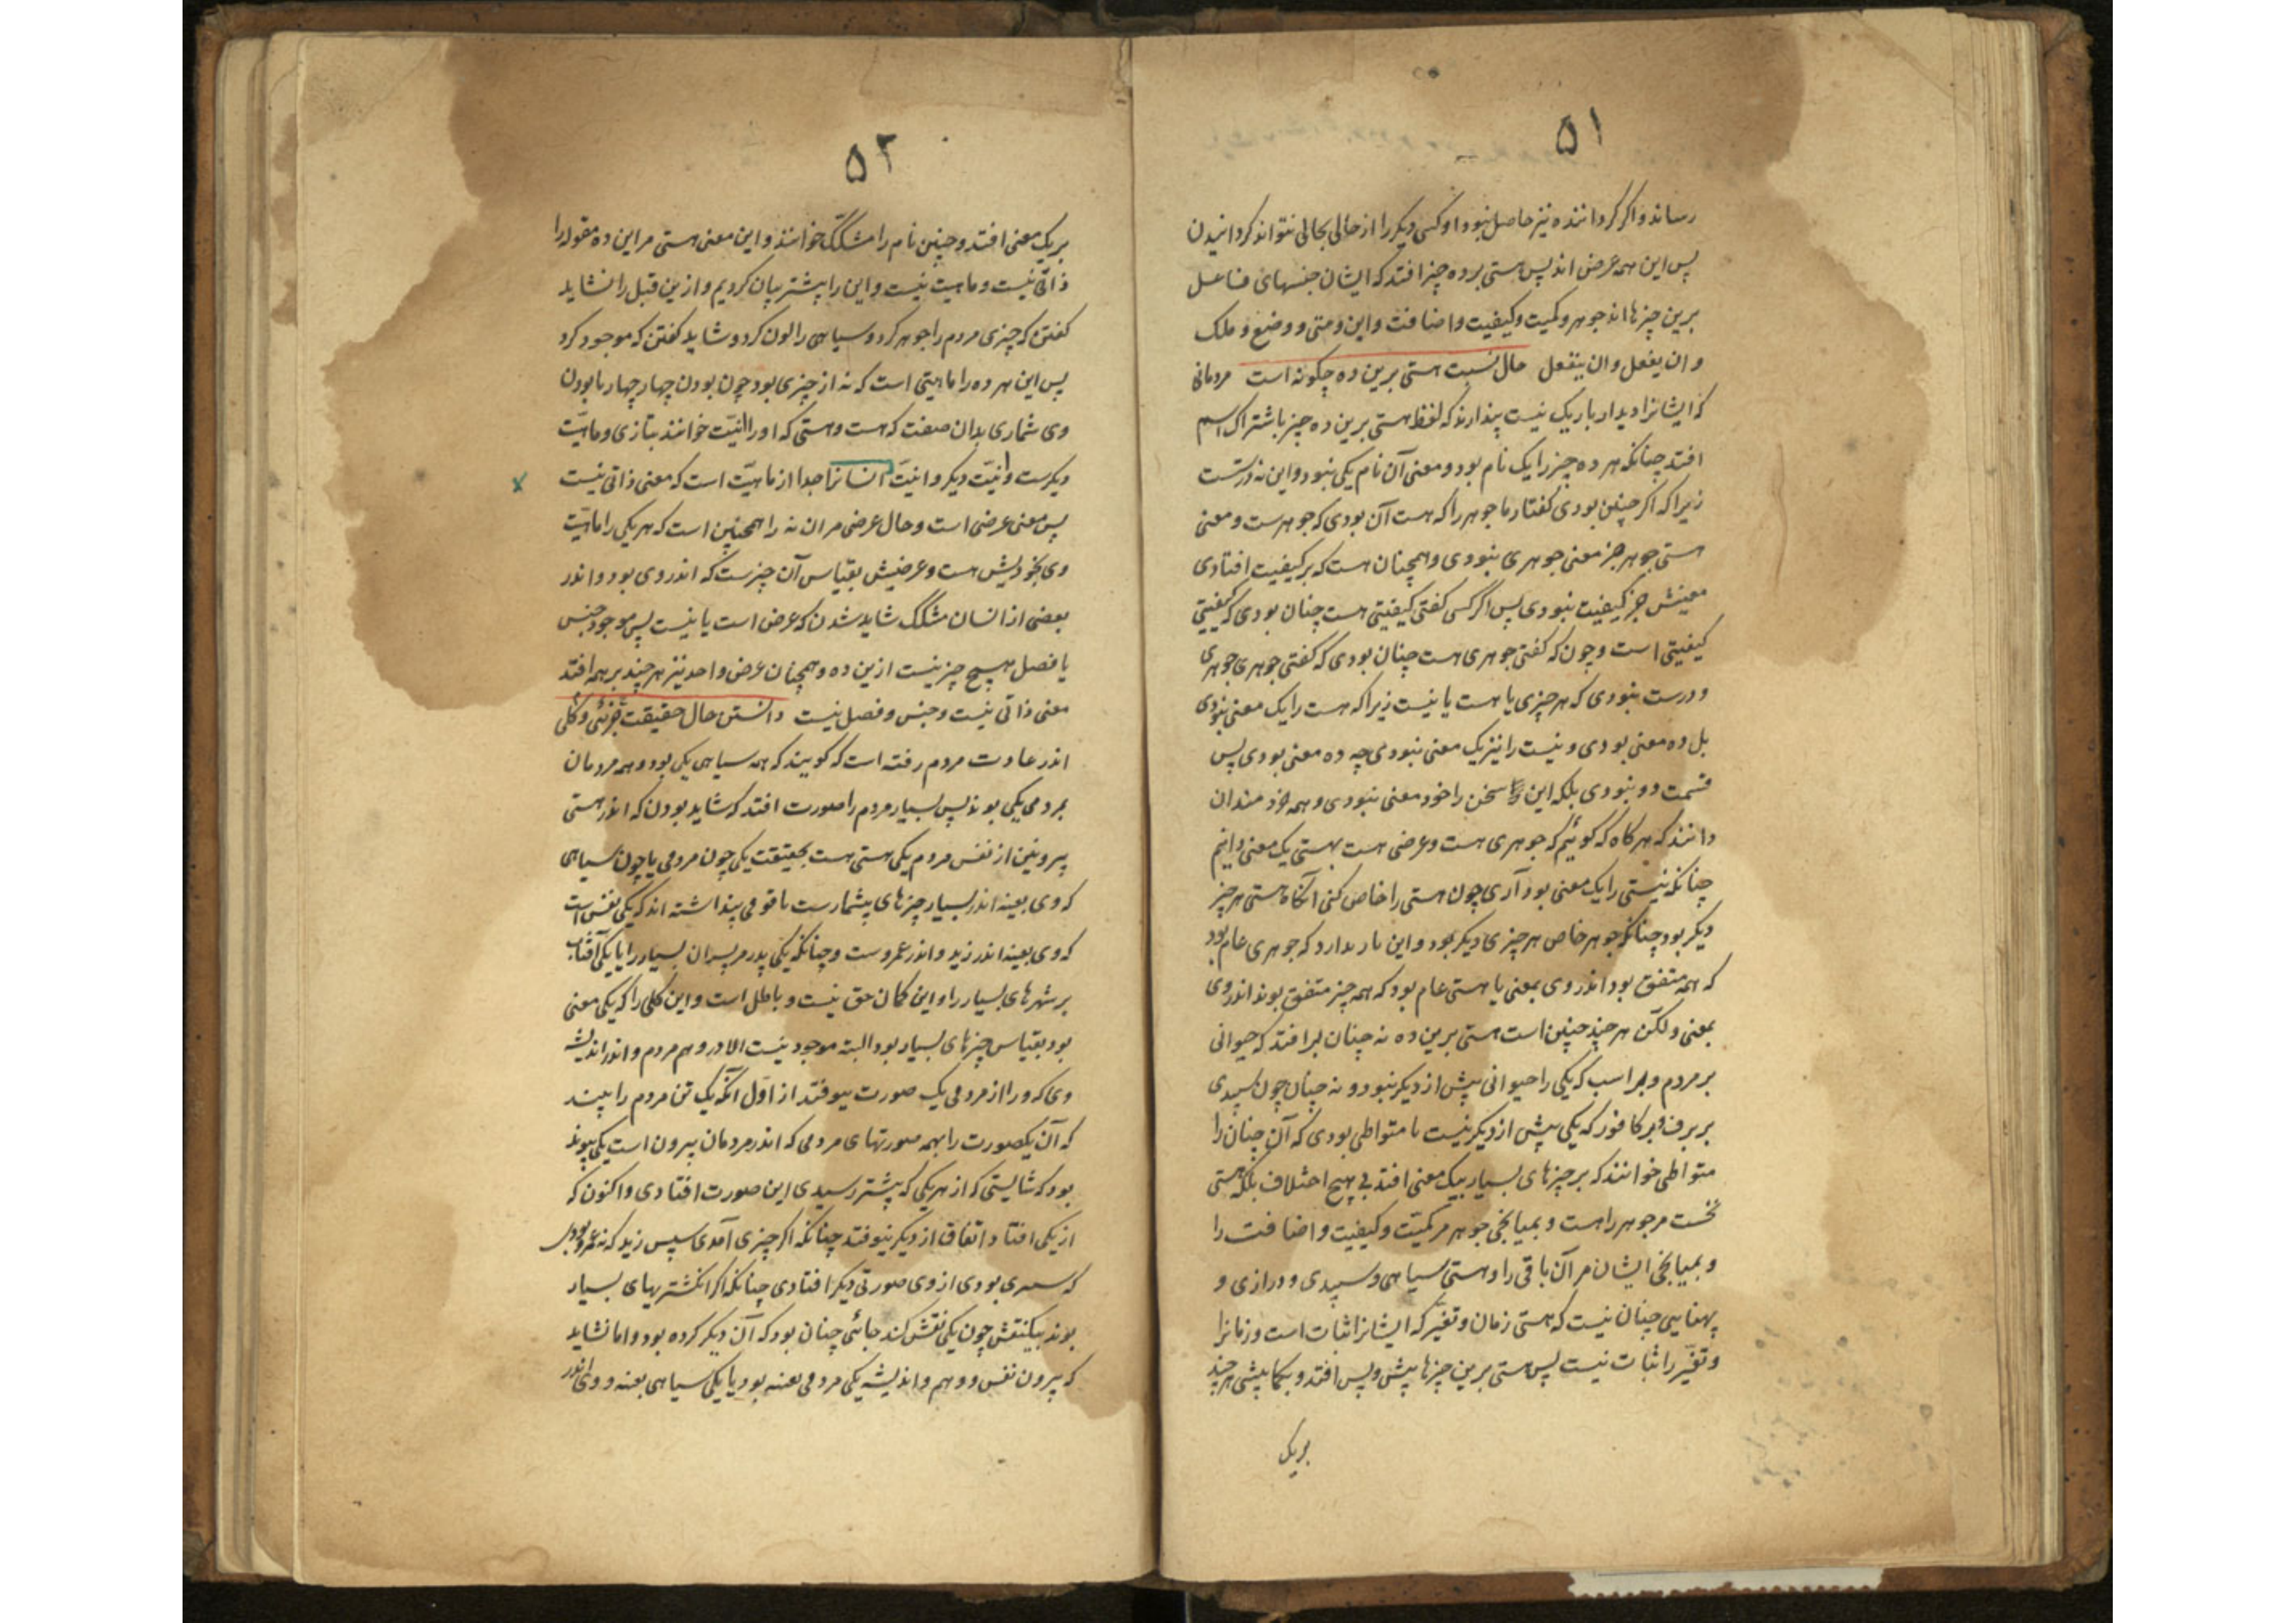 ۵۱
رساند و اگر گرداننده نیز حاصل نبود او کسی دیگر را از حالی بحالی نتواند گردانیدن
پس این همه عرض اند پس هستی بر ده چیز افتد که ایشان جنسهای فاعل
برین چیزها اند جوهر و کمیت و کیفیت و اضافت و این و متی و وضع و ملک
و ان یفعل و ان ینفعل حال نسبت هستی برین ده چگونه است مردمانی
که ایشانرا دیدار باریک نیست پندارند که لفظ هستی برین ده چیز باشتراک اسم
افتد چنانکه هر ده چیز را یک نام بود و معنی آن نام یکی نبود و این نه درست
زیرا که اگر چنین بودی گفتار ما جوهر را که هست آن بودی که جوهرست و معنی
هستی جوهر جز معنی جوهری نبودی و همچنان هست که بر کیفیت افتادی
معینش جز کیفیت نبودی پس اگر کسی گفتی کیفیتی هست چنان بودی که کیفیتی
کیفیتی است و چون که گفتی جوهری هست چنان بودی که گفتی جوهری جوهری
و درست نبودی که هر چیزی یا هست یا نیست زیرا که هست را یک معنی نبودی
بل ده معنی بودی و نیست را نیز یک معنی نبودی چه ده معنی بودی پس
قسمت دو نبودی بلکه این سخن را خود معنی نبودی و همه خردمندان
دانند که هر گاه که گوئیم که جوهری هست و عرضی هست بهستی یک معنی دانیم
چنانکه نیستی را یک معنی بود آری چون هستی را خاص کنی آنگاه هستی هر چیز
دیگر بود چنانکه جوهر خاص هر چیزی دیگر بود و این باز ندارد که جوهری عام بود
که همه متفق بود اندر وی بمعنی یا هستی عام بود که همه چیز متفق بوند اندر وی
بمعنی ولکن هر چند چنین است هستی برین ده نه چنان برافتد که حیوانی
بر مردم و بر اسب که یکی را حیوانی پیش از دیگر نبود و نه چنان چون سپیدی
بر برف و بر کافور که یکی پیش از دیگر نیست تا متواطی بودی که آن چنان را
متواطی خوانند که بر چیزهای بسیار بیک معنی افتد بی هیچ اختلاف بلکه هستی
نخست مر جوهر راست و بمیانجی جوهر مر کمیّت و کیفیت و اضافت را
و بمیانجی ایشان مر آن باقی را و هستی سیاهی و سپیدی و درازی و
پهنایی چنان نیست که هستی زمان و تغیّر که ایشانرا ثبات است و زمانرا
و تغیّر را ثبات نیست پس هستی برین چیزها پیش و پس افتد و بکمابیشی هر چند
بریک
۵۲
بر یک معنی افتد و چنین نام را مشکک خوانند و این معنی هستی مر این ده مقوله را
ذاتی نیست و ماهیت نیست و این را پیشتر بیان کردیم و از ین قبل را نشاید
گفتن که چیزی مردم را جوهر کرد و سیاهی را لون کرد و شاید گفتن که موجود کرد
پس این هر ده را ماهیتی است که نه از چیزی بود چون بودن چهار چهار یا بودن
وی شماری بدان صفت که هست و هستی که او را انیّت خوانند بتازی و ماهیّت
دیگرست و انیّت دیگر و انیّت انسانرا جدا از ماهیّت است که معنی ذاتی نیست
پس معنی عرضی است و حال عرضی مر ان نه را همچنین است که هر یکی را ماهیّت
وی بخودیش هست و عرضیش بقیاس آن چیزست که اندر وی بود و اندر
بعضی از انسان مشکک شاید شدن که عرض است یا نیست پس موجود جنس
یا فصل هیچ چیز نیست ازین ده و همچنان عرض و احد نیز هر چند بر همه افتد
معنی ذاتی نیست و جنس و فصل نیست دانستن حال حقیقت جزئی و کلی
اندر عادت مردم رفته است که گویند که همه سیاهی یکی بود و همه مردمان
بمردمی یکی بوند پس بسیار مردم را صورت افتد که شاید بودن که اندر هستی
بیرونین از نفس مردم یکی هستی هست بحقیقت یکی چون مردمی یا چون سیاهی
که وی بعینه اندر بسیار چیزهای بیشمارست تا قومی پنداشته اند که یکی نفس است
که وی بعینه اندر زید و اندر عمروست و چنانکه یکی پدر مر پسران بسیار را یا یکی آفتاب
بر شهرهای بسیار را و این گمان حق نیست و باطل است و این کلی را که یکی معنی
بود بقیاس چیزهای بسیار بود البته موجود نیست الا در وهم مردم و اندر اندیشه
وی که ورا از مردمی یک صورت بیوفتد از اوّل آنکه یک تن مردم را بیند
که آن یکصورت را بهمه صورتهای مردمی که اندر مردمان بیرون است یکی پیوند
بود که شایستی که از هر یکی که پیشتر رسیدی این صورت افتادی و اکنون که
از یکی افتاد اتفاق از دیگر نیوفتد چنانکه اگر چیزی آمدی سپس زید که نه عمرو بودی
که سری بودی از وی صورتی دیگر افتادی چنانکه اگر انگشتریهای بسیار
بوند بیکنقش چون یکی نقش کند جائی چنان بود که آن دیگر کرده بود و اما نشاید
که بیرون نفس و وهم و اندیشه یکی مردمی بعینه بود یا یکی سیاهی بعینه و وی اندر